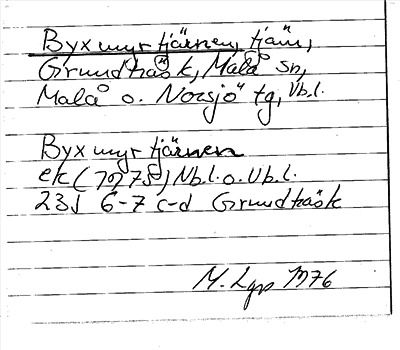 Byxmyrtjärnen, tjärn,
Grundträsk, Malå sn,
Malå o. Norsjö tg, Vb.l.
Byxmyrtjärnen
ek (1975) Nb.l. o. Vb.l.
23J 6-7 c-d Grundträsk
M. Lgp 1976